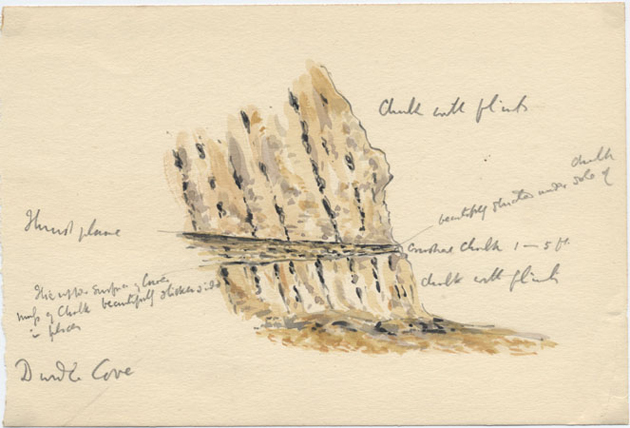 Chalk with flints
chalk
beautifully striated under side of
Thrust plane
crushed Chalk 1–5 ft.
chalk with flints
The upper surface of lower
mass of Chalk beautifully slickensided
in places
Durdle Cove